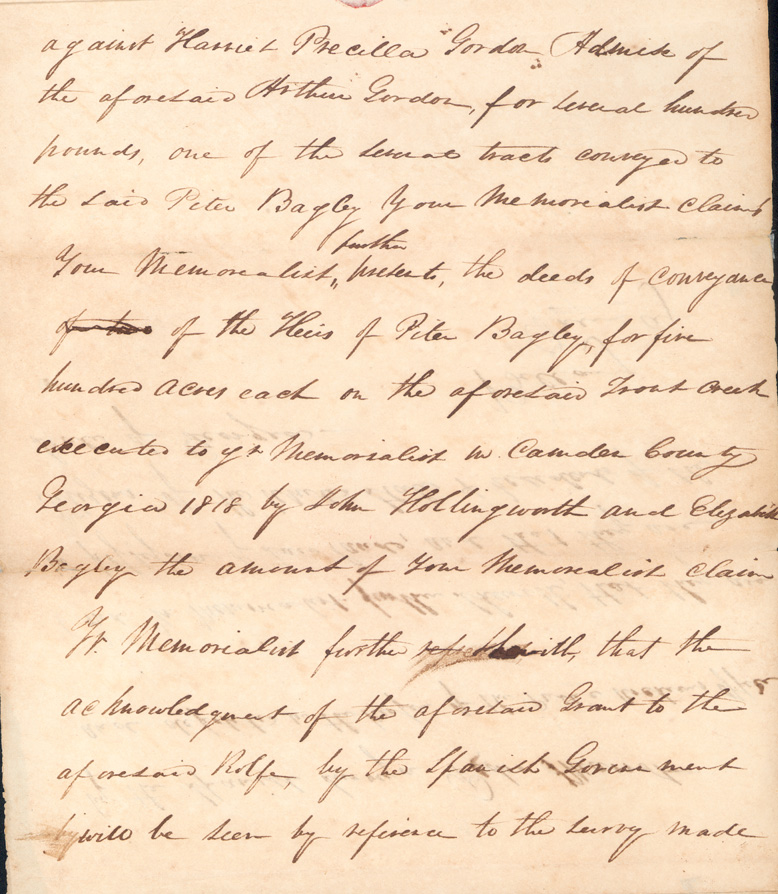 against Harriet Precilla Gordon Admix of
the aforesaid Arthur Gordon, for several hundred
pounds, one of the several tracts conveyed to
the said Peter Bagley Your Memorialist claims
further
Your Memorialist, presents, the deeds of conveyance
of the Heirs of Peter Bagley, for five
hundred acres each on the aforesaid Trout Creek
executed to yr Memorialist in Camden County
Georgia 1818 by John Hollingworth and Elizabeth
Bagley the amount of Your Memorialist claim
Yr Memorialist further with, that the
acknowledgment of the aforesaid Grant to the
aforesaid Rolfe, by the Spanish Government
will be seen by reference to the survy made